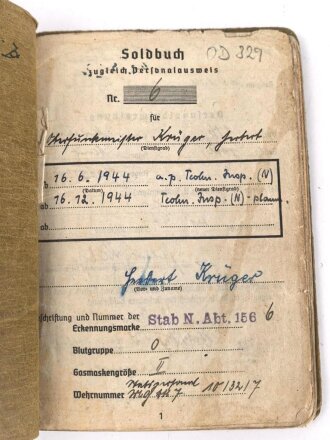 Soldbuch
OD 329
zugleich Personalausweis
Nr. 6
für
Oberfunkmeister Krüger, Herbert
(Dienstgrad)
ab 16.6.1944 a.p. Techn. Insp. (N)
(Datum) (neuer Dienstgrad)
ab 16.12.1944 Techn. Insp. (N) -planm.
ab
Herbert Krüger
(Vor- und Zuname)
Beschriftung und Nummer der
Erkennungsmarke Stab N. Abt. 156 6
Blutgruppe O
Gasmaskengröße II
Wehrnummer 10/32/7
1